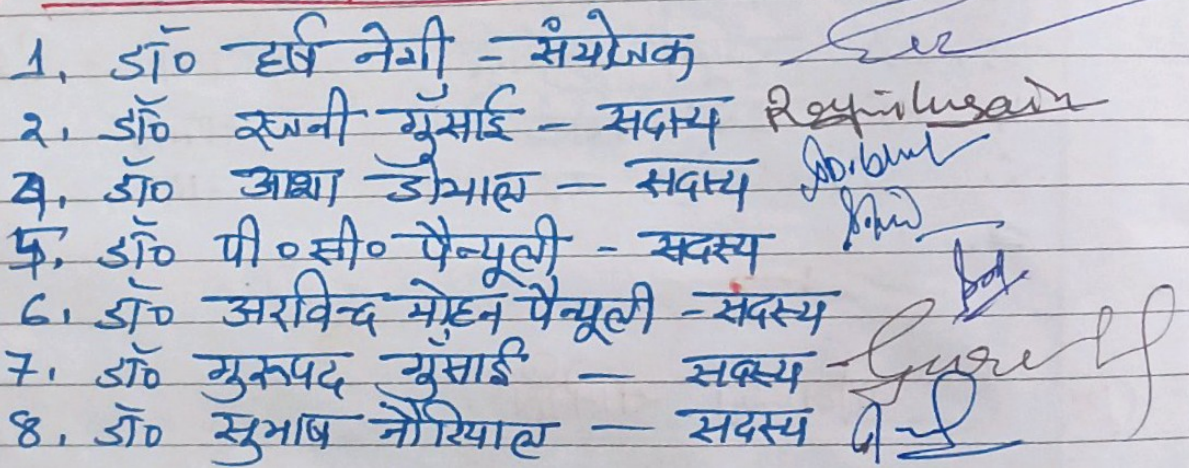 1. डॉ० हर्ष नेगी - संयोजक
2. डॉ० रजनी गुँसाई - सदस्य Rajni Gusain
4. डॉ० आशा डोभाल - सदस्य
5. डॉ० पी०सी० पैन्यूली - सदस्य
6. डॉ० अरविन्द मोहन पैन्यूली - सदस्य
7. डॉ० गुरुपद गुँसाई - सदस्य
8. डॉ० सुभाष नौरियाल - सदस्य